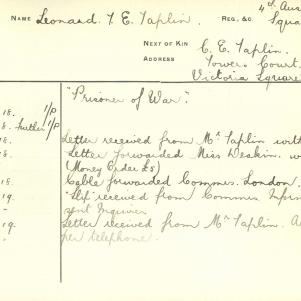 NAME Leonard T. E. Taplin. REG. &c 4th Aus
Squa
NEXT OF KIN C. E. Taplin.
ADDRESS Towers Court.
Victoria Square
"Prisoner of War".
18. 1/P
8. further 1/P
18. Letter received from Mr Taplin with
8. Letter forwarded Miss Deakin. w
(Money Order £5)
18. Cable forwarded Commrs. London.
19. "Slip" received from Commrs
- sent Inquirer
19. Letter received from Mr Taplin.
- per telephone